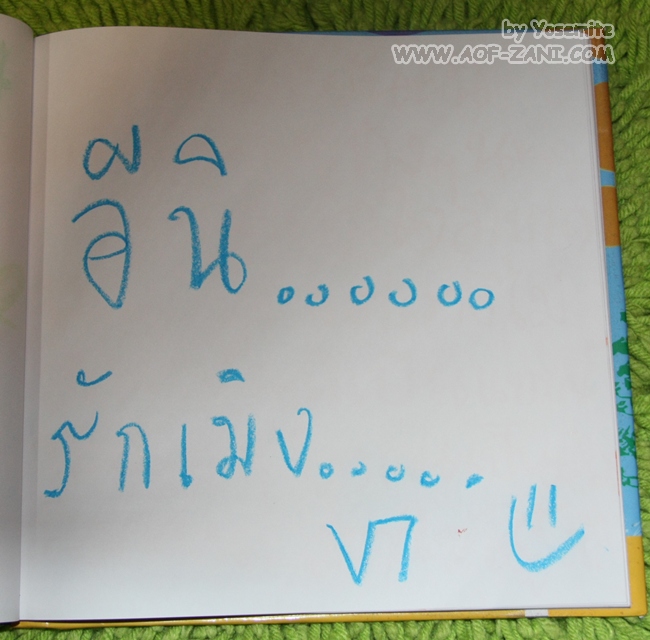 by Yosemite
WWW.AOF-ZANI.COM
นิ......
รักเมิง.....